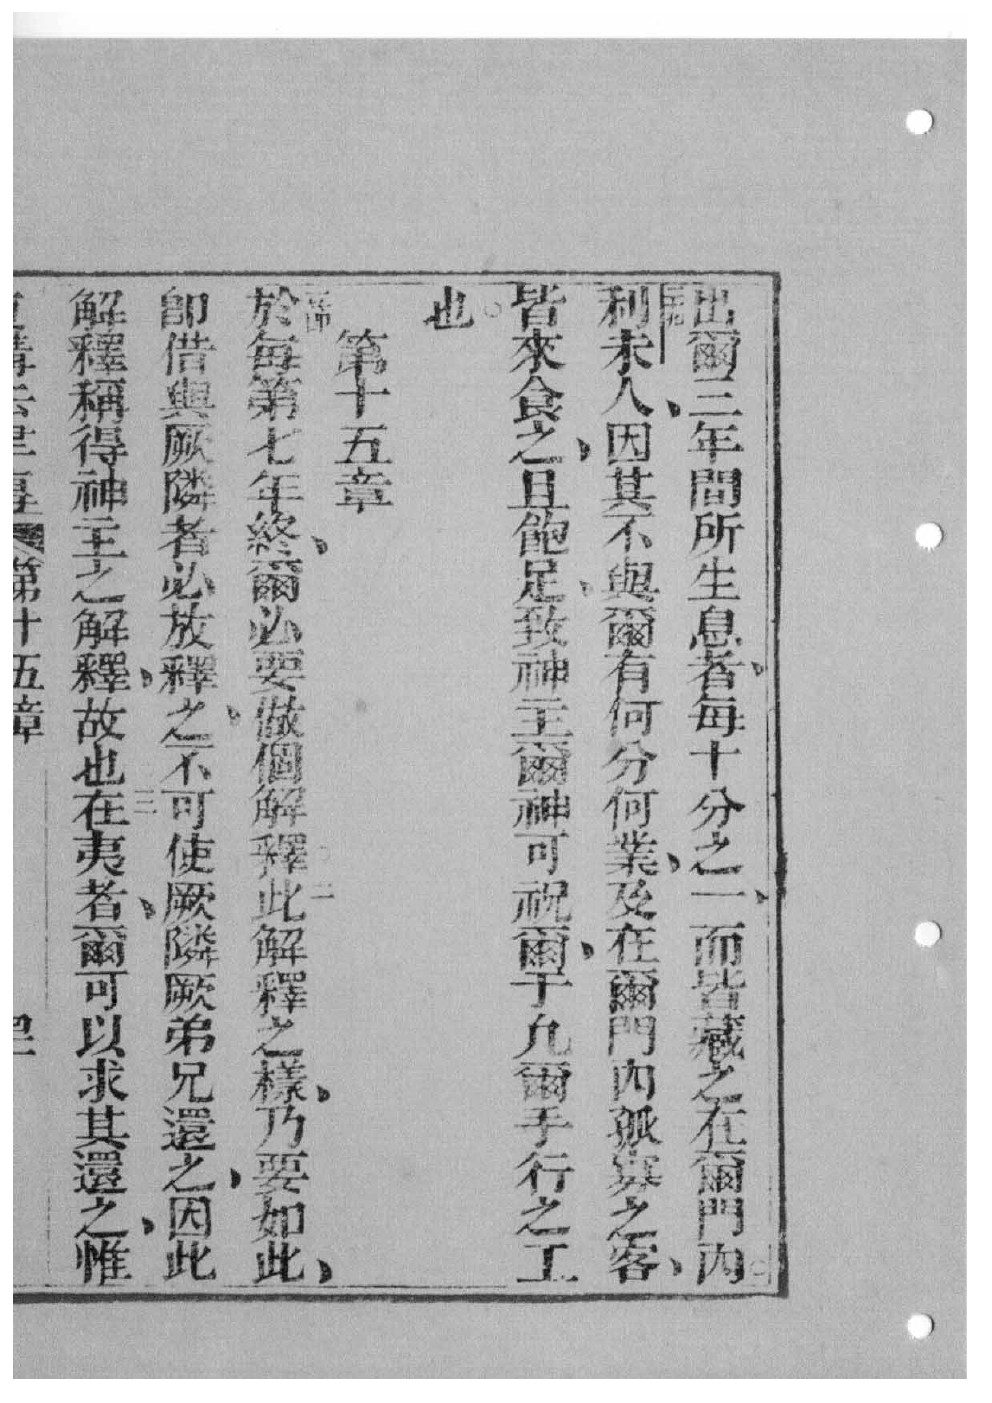 出爾三年間所生息者、每十分之一、而皆藏之在爾門內。
利未人、因其不與爾有何分何業、及在爾門內孤寡之客、
皆來食之、且飽足、致神主爾神可祝爾、于凡爾手行之工
也。
第十五章
一節 於每第七年終、爾必要做個解釋。二 此解釋之樣、乃要如此、
卽借與厥隣者必放釋之、不可使厥隣厥弟兄還之、因此
解釋稱得神主之解釋、故也。三 在夷者、爾可以求其還之、惟
第十五章